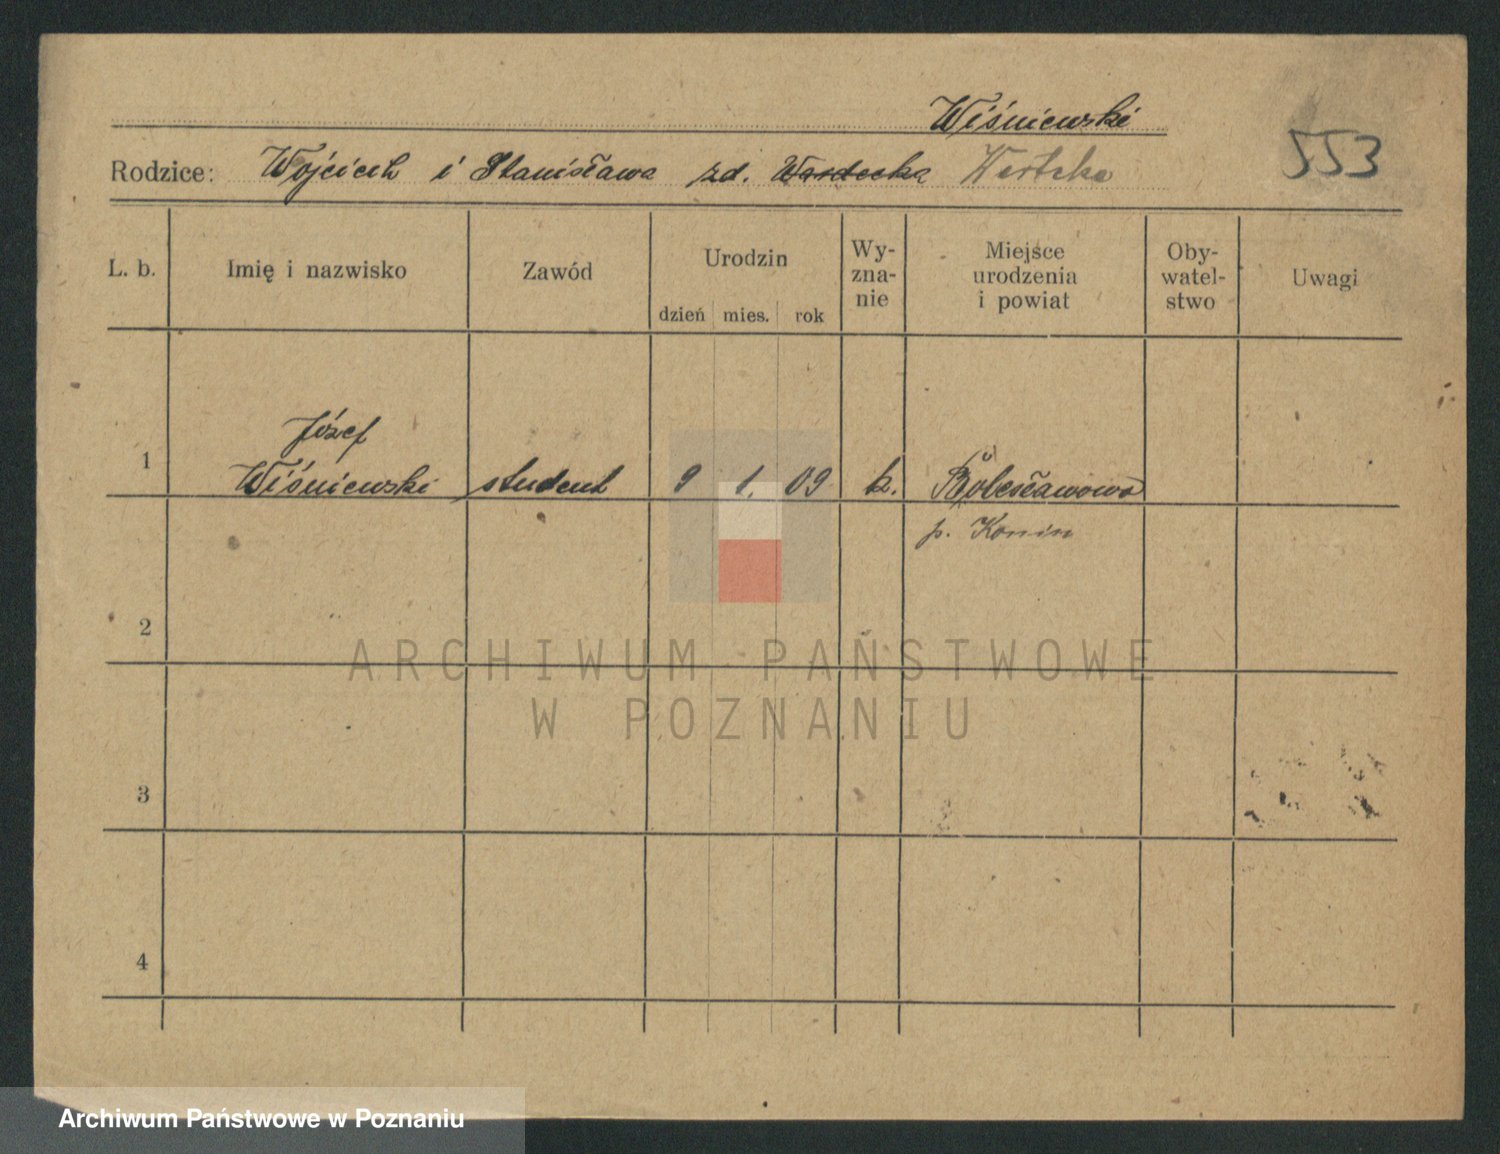 Wiśniewski
553
Rodzice: Wojciech i Stanisława zd. Wardecka
L. b. Imię i nazwisko Zawód Urodzin dzień mies. rok Wy-zna-nie Miejsce urodzenia i powiat Oby-watel-stwo Uwagi
Józef
1 Wiśniewski student 9 1. 09 k. Bolesławowo
p. Konin
2
ARCHIWUM PAŃSTWOWE
W POZNANIU
3
4
Archiwum Państwowe w Poznaniu